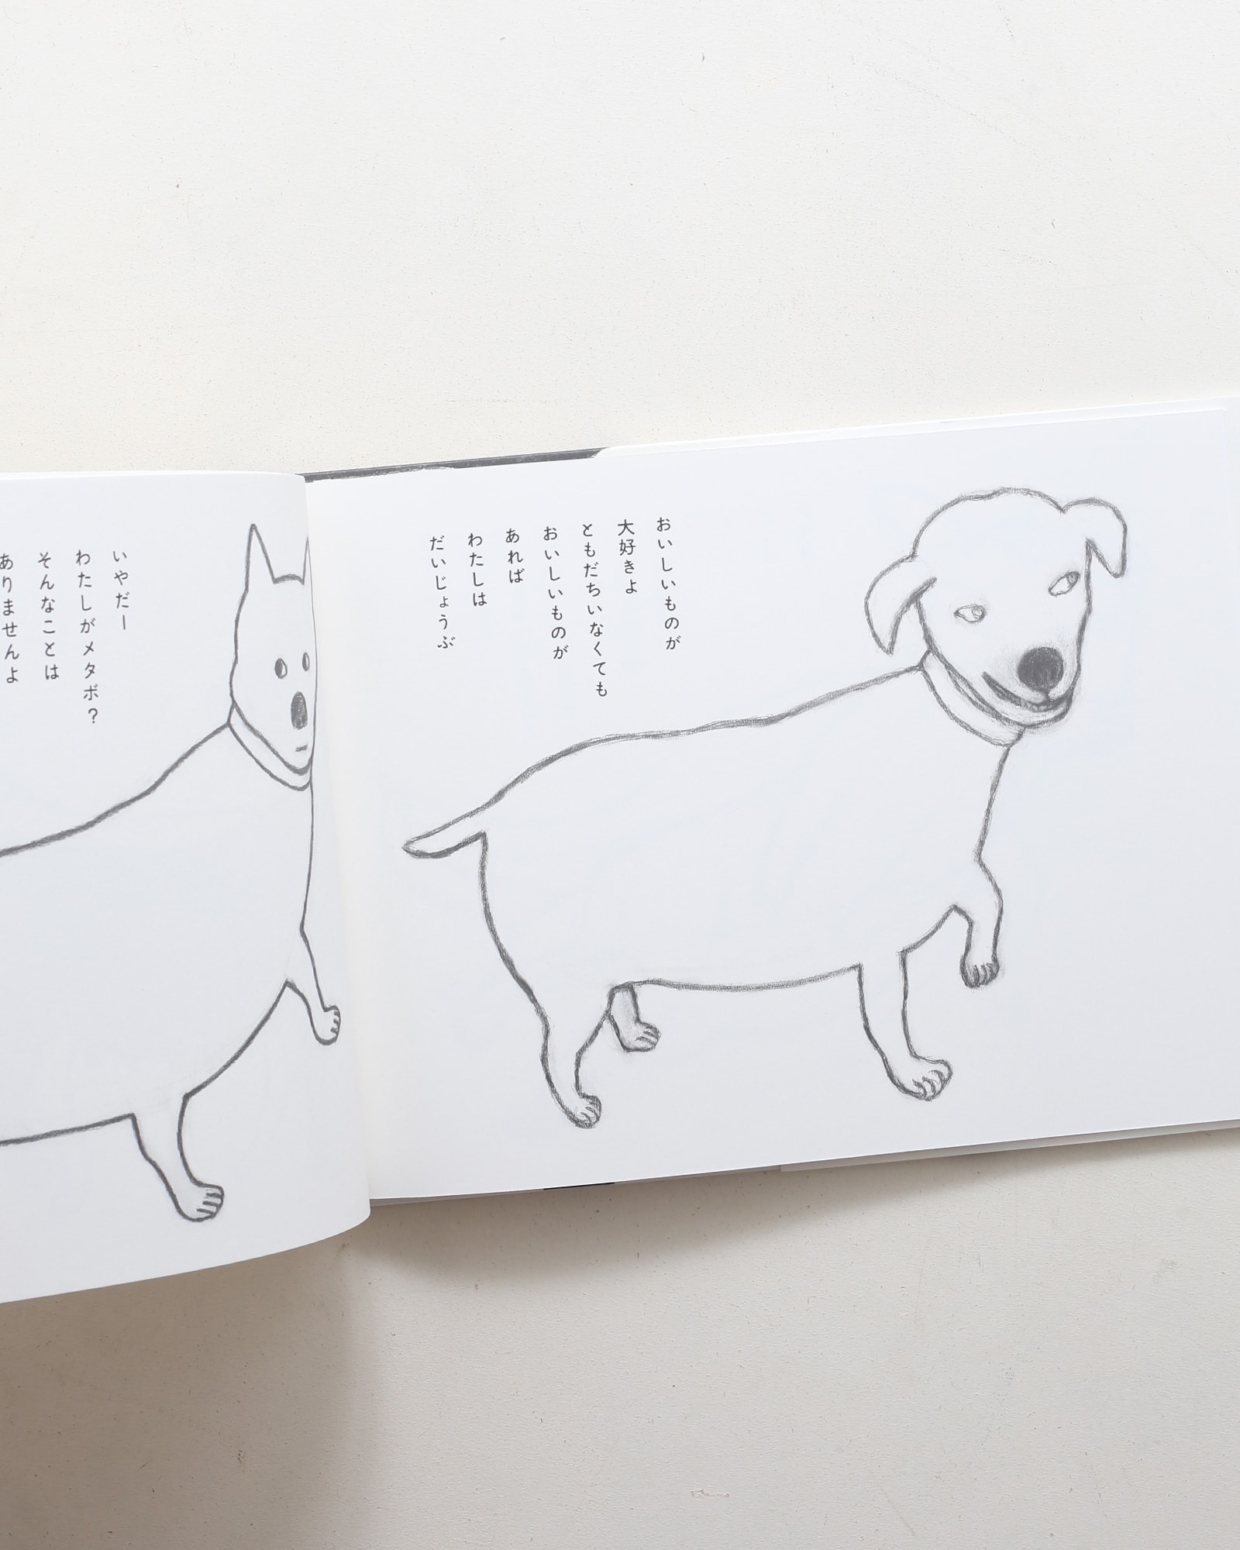 おいしいものが
大好きよ
ともだちいなくても
おいしいものが
あれば
わたしは
だいじょうぶ
いやだー
わたしがメタボ？
そんなことは
ありませんよ